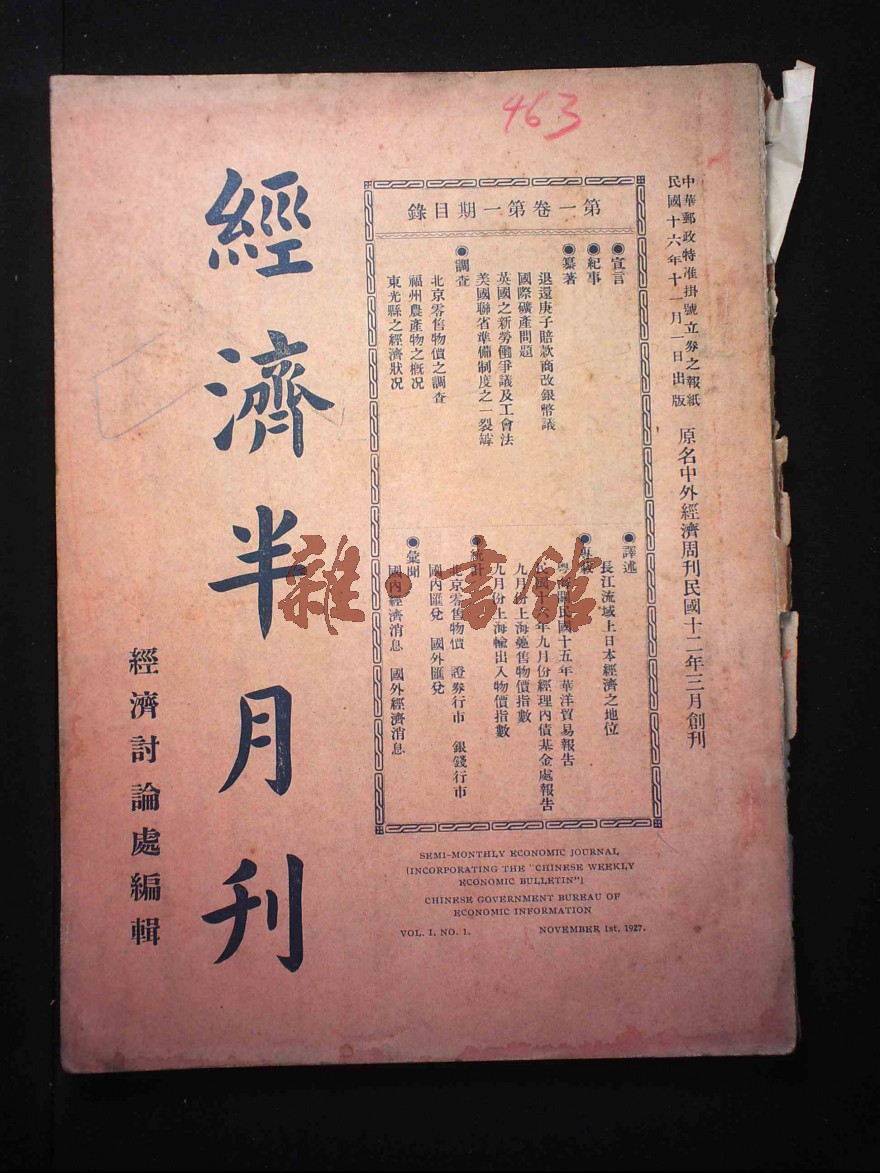 463
中華郵政特准掛號立券之報紙
民國十六年十一月一日出版
原名中外經濟周刊民國十二年三月創刊
第一卷第一期目錄
●宣言
●紀事
●纂著
退還庚子賠款商改銀幣議
國際礦產問題
英國之新勞働爭議及工會法
美國聯省準備制度之一裂罅
●調查
北京零售物價之調查
福州農產物之概况
東光縣之經濟狀况
●譯述
長江流域上日本經濟之地位
●專載
粵海關民國十五年華洋貿易報告
民國十六年九月份經理內債基金處報告
九月份上海躉售物價指數
九月份上海輸出入物價指數
●統計
北京零售物價 證券行市 銀錢行市
國內匯兌 國外匯兌
●彙聞
國內經濟消息 國外經濟消息
經濟半月刊
經濟討論處編輯
雜·書館
SEMI-MONTHLY ECONOMIC JOURNAL
(INCORPORATING THE "CHINESE WEEKLY
ECONOMIC BULLETIN")
CHINESE GOVERNMENT BUREAU OF
ECONOMIC INFORMATION
VOL. I. NO. 1. NOVEMBER 1st, 1927.